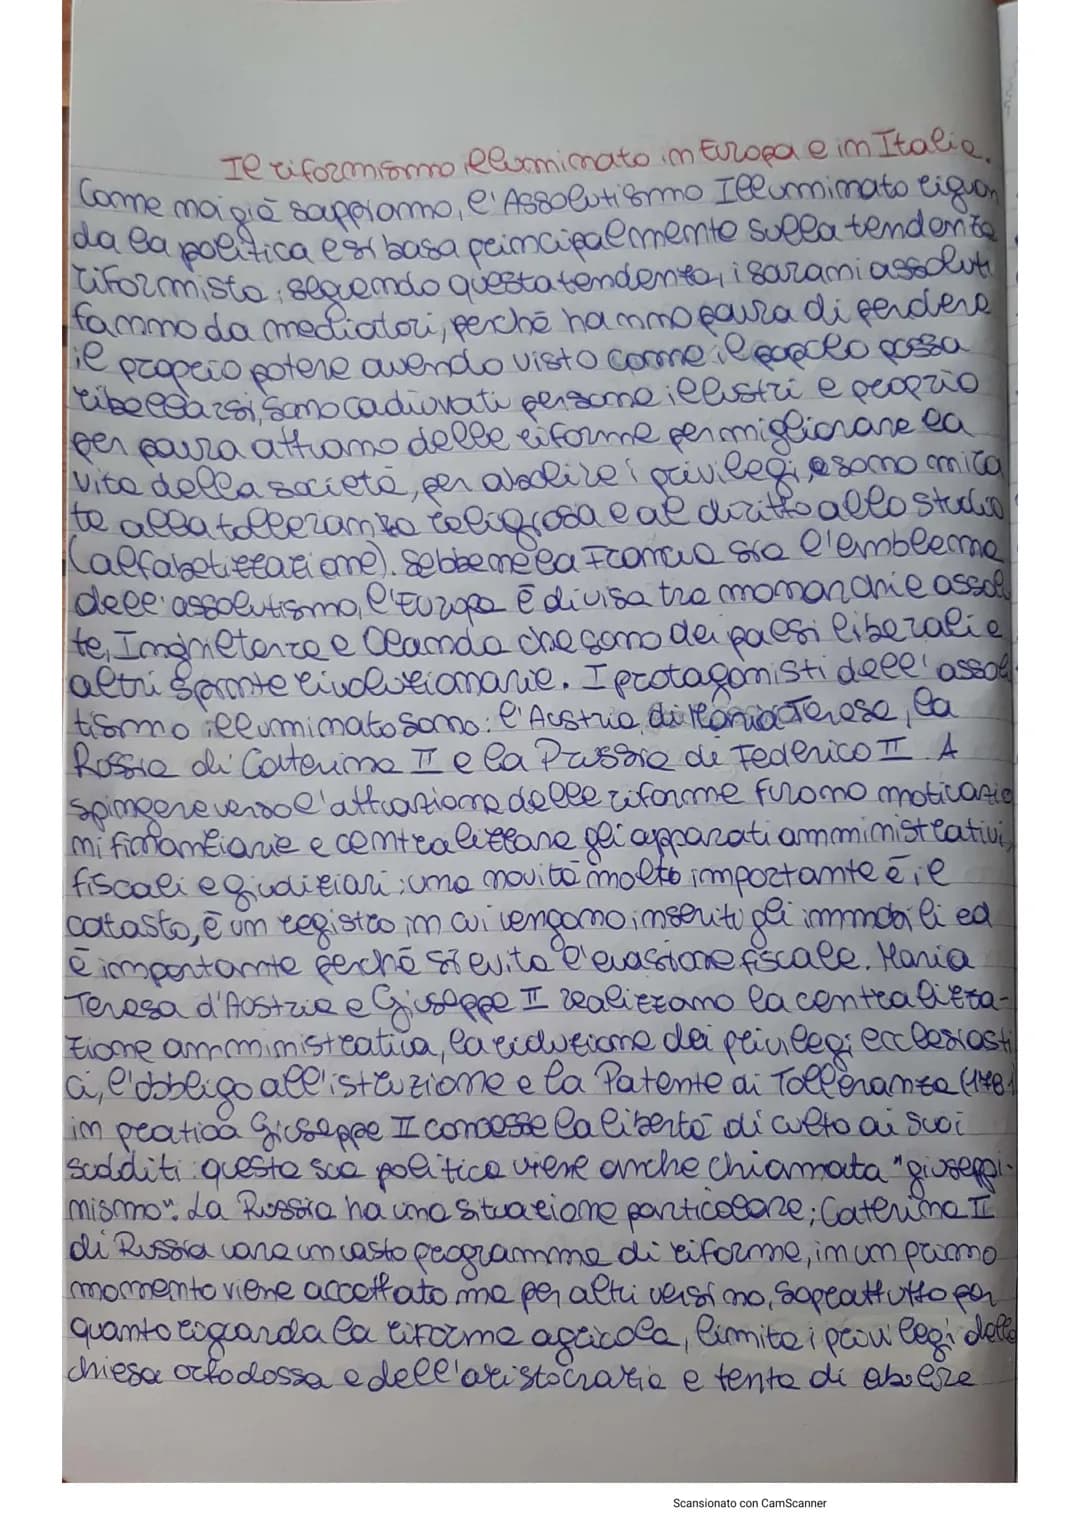 Il riformismo illuminato in Europa e in Italia.
Come noi già sappiamo, l'Assolutismo Illuminato riguar
da la politica e si basa principalmente sulla tendenza
riformista; seguendo questa tendenza, i sovrani assoluti
fanno da mediatori, perchè hanno paura di perdere
il proprio potere avendo visto come il popolo possa
ribellarsi, sono cadiuvati persone illustri e proprio
per paura attuano delle riforme per migliorare la
vita della società, per abolire i privilegi, e sono mira
te alla tolleranza religiosa e al diritto allo studio
(alfabetizzazione). Sebbene la Francia sia l'emblema
dell'assolutismo, l'Europa è divisa tra monarchie assolu
te, Inghilterra e Olanda che sono dei paesi liberali e
altri spinte rivoluzionarie. I protagonisti dell'assolu
tismo illuminato sono: l'Austria di Maria Teresa, la
Russia di Caterina II e la Prussia di Federico II. A
spingere verso l'attuazione delle riforme furono motivazio
ni finanziarie e centralizzare gli apparati amministrativi,
fiscali e giudiziari; una novità molto importante è il
catasto, è un registro in cui vengono inseriti gli immobili ed
è importante perchè si evita l'evasione fiscale. Maria
Teresa d'Austria e Giuseppe II realizzano la centralizza-
zione amministrativa, la riduzione dei privilegi ecclesiasti
ci, l'obbligo all'istruzione e la Patente di Tolleranza (1781
in pratica Giuseppe II concesse la libertà di culto ai suoi
sudditi questa sua politica viene anche chiamata "giuseppi-
nismo". La Russia ha una situazione particolare; Caterina II
di Russia vara un vasto programma di riforme, in un primo
momento viene accettato ma per altri versi no, sopratutto per
quanto riguarda la riforma agricola, limita i privilegi della
chiesa ortodossa e dell'aristocrazia e tenta di abolire
Scansionato con CamScanner